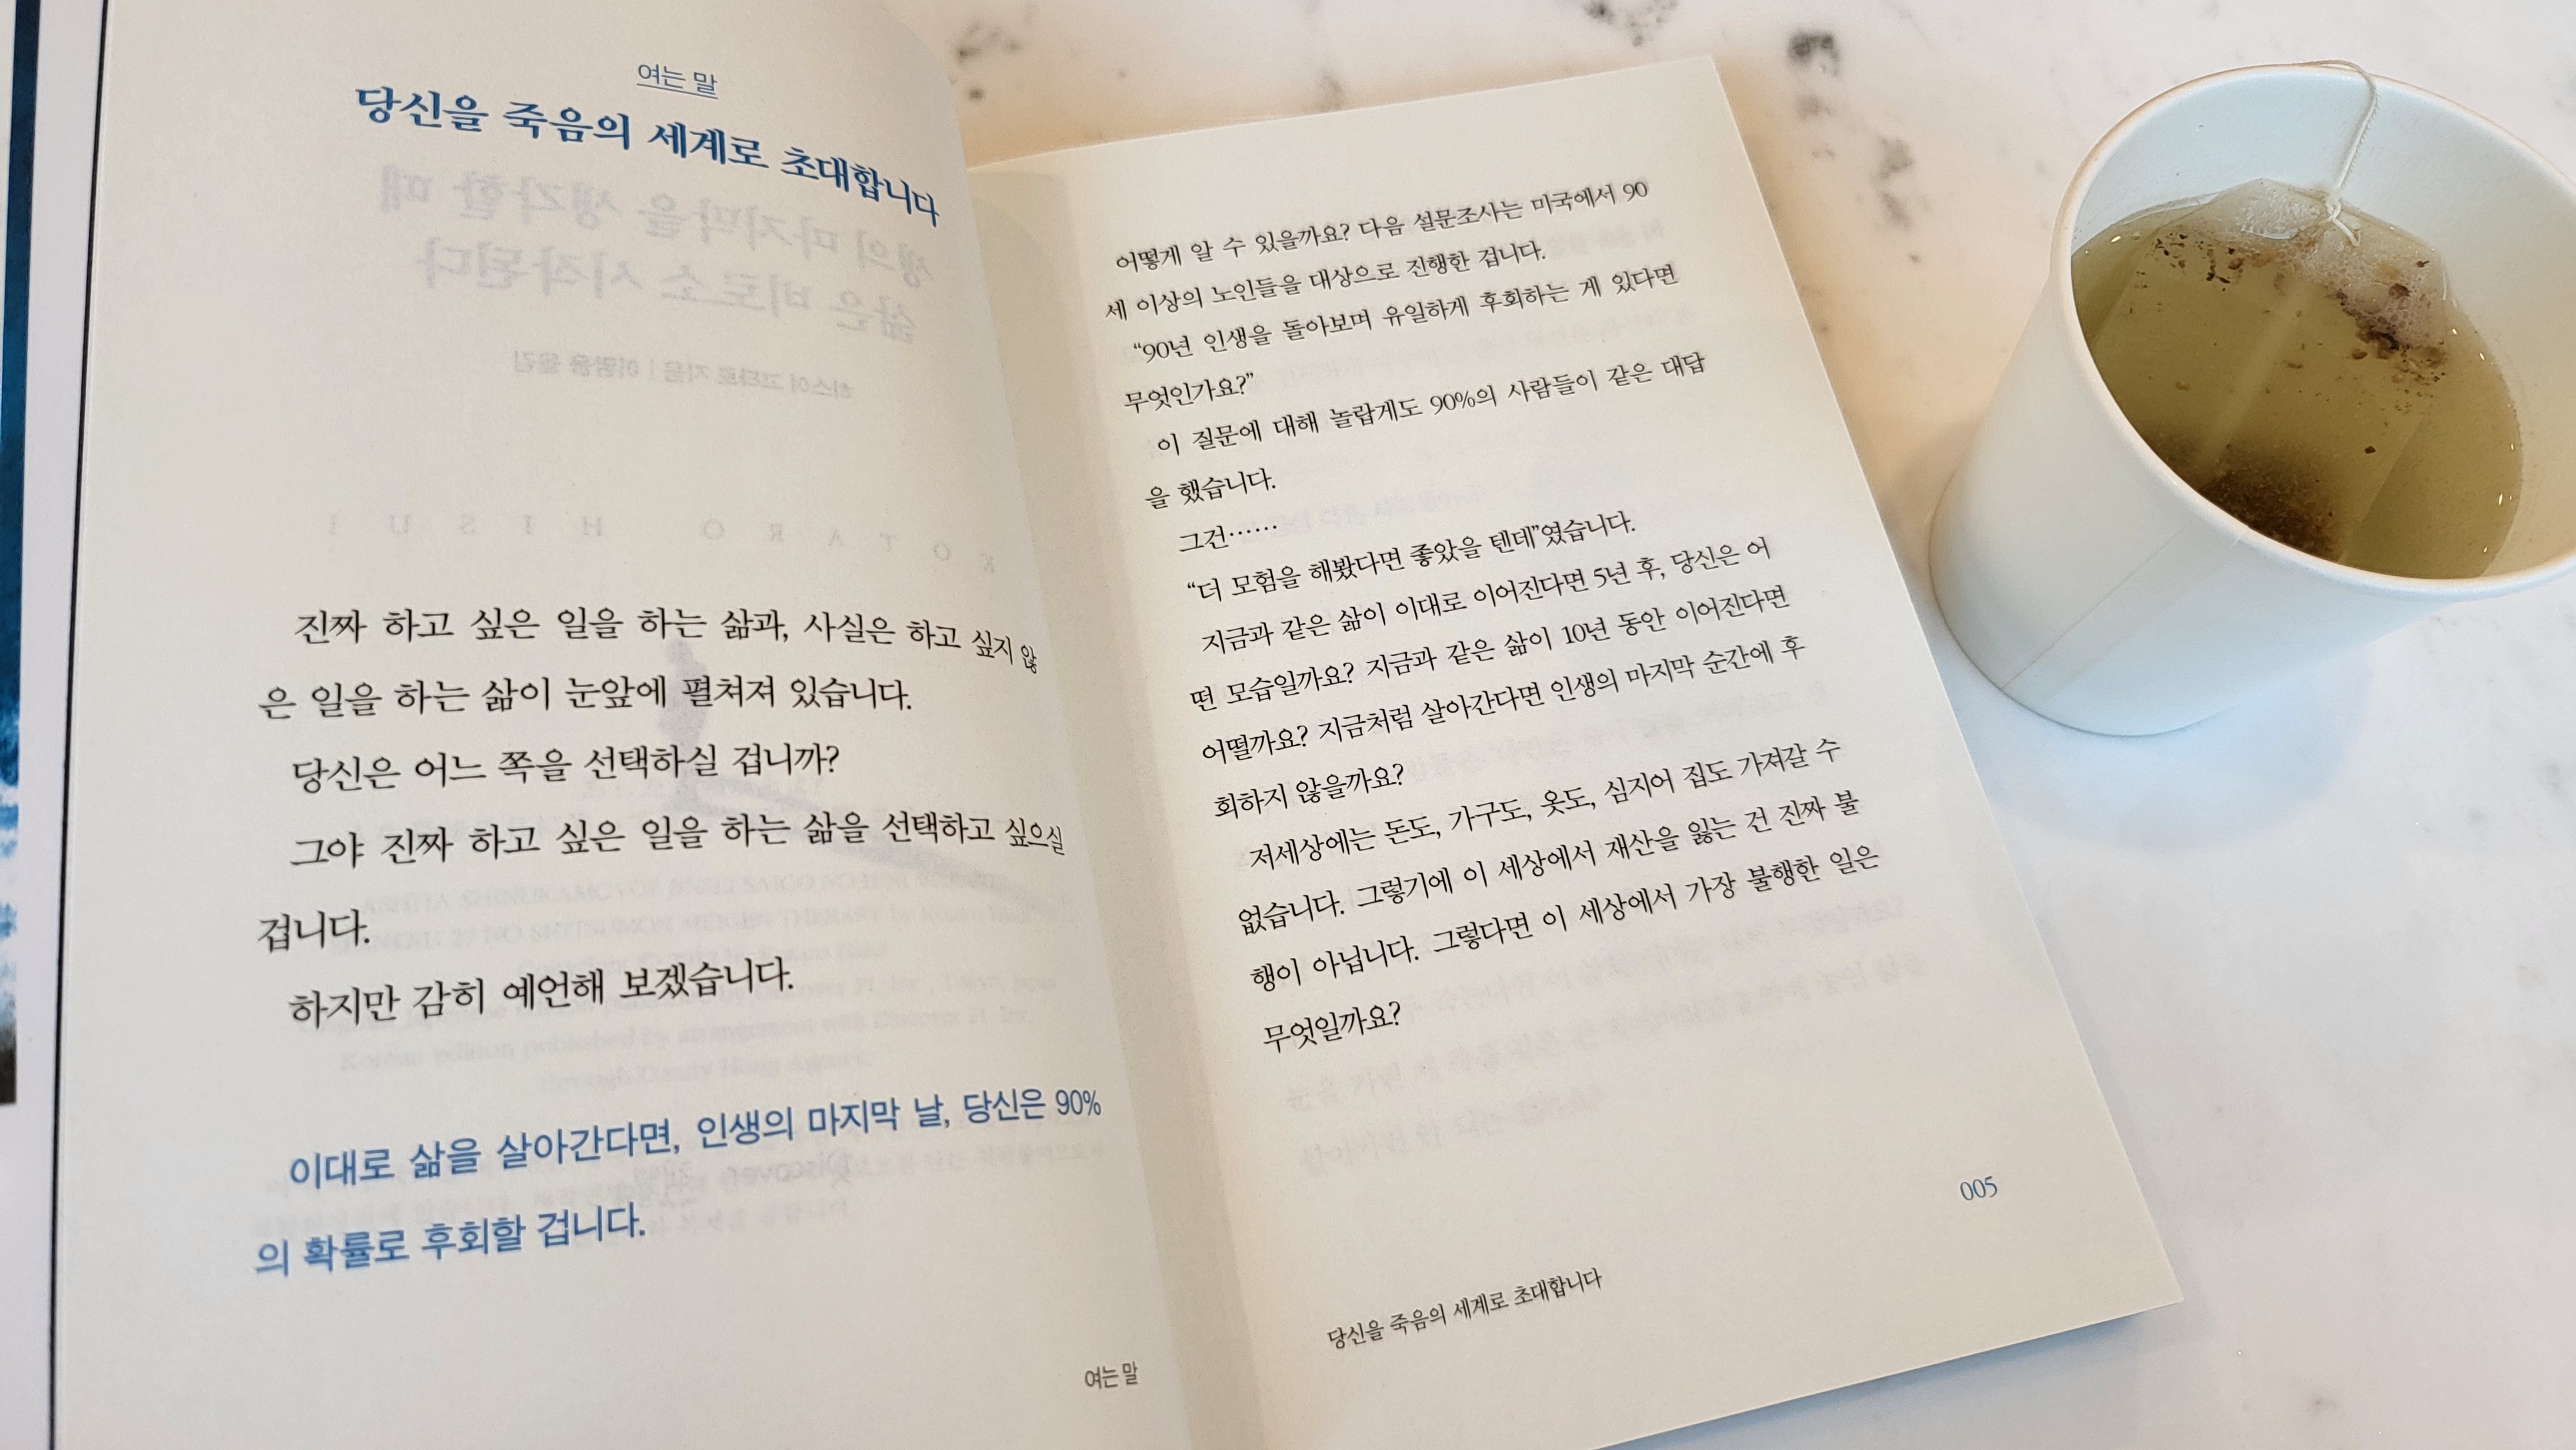 여는 말
당신을 죽음의 세계로 초대합니다
진짜 하고 싶은 일을 하는 삶과, 사실은 하고 싶지 않
은 일을 하는 삶이 눈앞에 펼쳐져 있습니다.
당신은 어느 쪽을 선택하실 겁니까?
그야 진짜 하고 싶은 일을 하는 삶을 선택하고 싶으실
겁니다.
하지만 감히 예언해 보겠습니다.
이대로 삶을 살아간다면, 인생의 마지막 날, 당신은 90%
의 확률로 후회할 겁니다.
여는 말
어떻게 알 수 있을까요? 다음 설문조사는 미국에서 90
세 이상의 노인들을 대상으로 진행한 겁니다.
“90년 인생을 돌아보며 유일하게 후회하는 게 있다면
무엇인가요?”
이 질문에 대해 놀랍게도 90%의 사람들이 같은 대답
을 했습니다.
그건……
“더 모험을 해봤다면 좋았을 텐데”였습니다.
지금과 같은 삶이 이대로 이어진다면 5년 후, 당신은 어
떤 모습일까요? 지금과 같은 삶이 10년 동안 이어진다면
어떨까요? 지금처럼 살아간다면 인생의 마지막 순간에 후
회하지 않을까요?
저세상에는 돈도, 가구도, 옷도, 심지어 집도 가져갈 수
없습니다. 그렇기에 이 세상에서 재산을 잃는 건 진짜 불
행이 아닙니다. 그렇다면 이 세상에서 가장 불행한 일은
무엇일까요?
005
당신을 죽음의 세계로 초대합니다